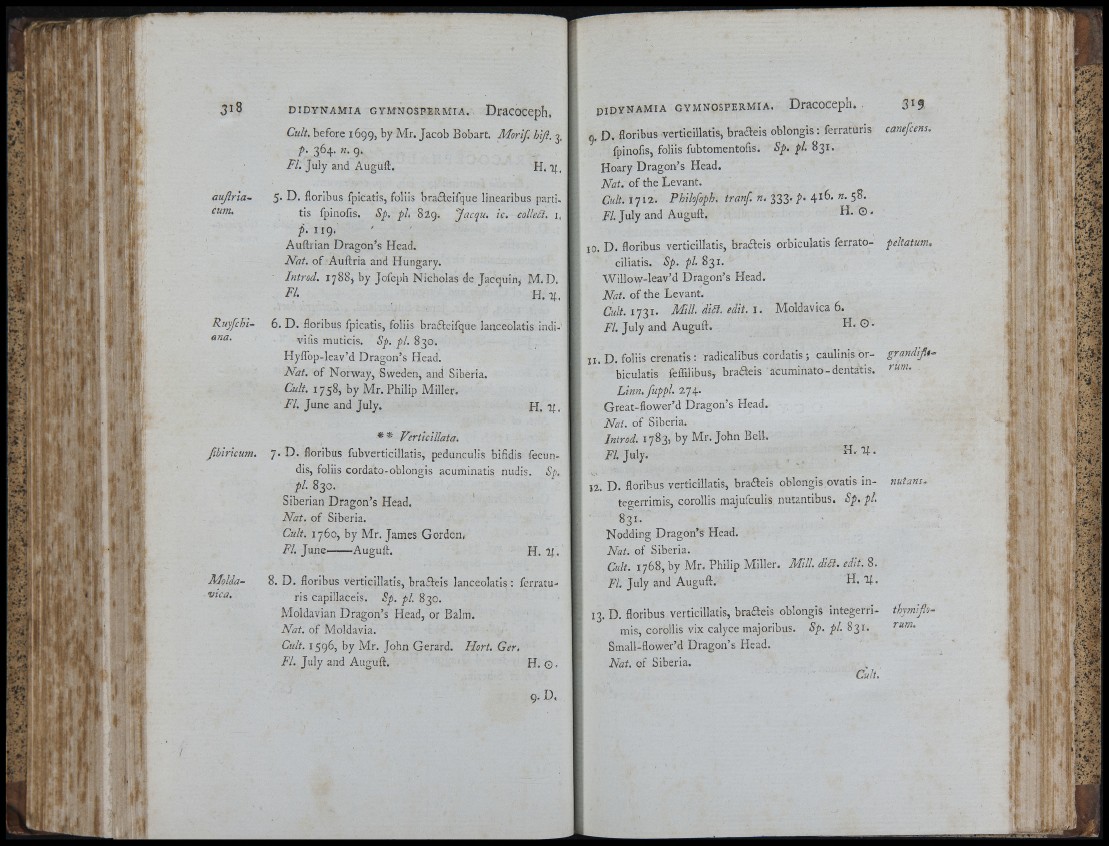 318 DIDYNAMIA GYMNOSPERMIA. Dracoceph.
Cult. before 1699, by Mr. Jacob Bobart. Moriſ. hiſt. 3.
p. 364. n. 9.
Fl. July and Auguſt. H. ♃.
auſtria- 5. D. floribus ſpicatis, foliis bracteiſque linearibus parti-
cum. tis ſpinoſis. Sp. pl. 829. Jacqu. ic. collect. 1.
p. 119.
Auſtrian Dragon's Head.
Nat. of Auſtria and Hungary.
Introd. 1788, by Joſeph Nicholas de Jacquin, M.D.
Fl. H. ♃.
Ruyſchi- 6. D. floribus ſpicatis, foliis bracteiſque lanceolatis indi-
ana. viſis muticis. Sp. pl. 830.
Hyſſop-leav'd Dragon's Head.
Nat. of Norway, Sweden, and Siberia.
Cult. 1758, by Mr. Philip Miller.
Fl. June and July. H. ♃.
** Verticillata.
ſibiricum. 7. D. floribus ſubverticillatis, pedunculis bifidis ſecun-
dis, foliis cordato-oblongis acuminatis nudis. Sp.
pl. 830.
Siberian Dragon's Head.
Nat. of Siberia.
Cult. 1760, by Mr. James Gordon.
Fl. June——Auguſt. H. ♃.
Molda- 8. D. floribus verticillatis, bracteis lanceolatis: ſerratu-
vica. ris capillaceis. Sp. pl. 830.
Moldavian Dragon's Head, or Balm.
Nat. of Moldavia.
Cult. 1596, by Mr. John Gerard. Hort. Ger.
Fl. July and Auguſt. H. ☉.
9. D.
DIDYNAMIA GYMNOSPERMIA. Dracoceph. 319
9. D. floribus verticillatis, bracteis oblongis: ſerraturis caneſcens.
ſpinoſis, foliis ſubtomentoſis. Sp. pl. 831.
Hoary Dragon's Head.
Nat. of the Levant.
Cult. 1712. Philoſoph. tranſ. n. 333. p. 416. n. 58.
Fl. July and Auguſt. H. ☉.
10. D. floribus verticillatis, bracteis orbiculatis ſerrato- peltatum.
ciliatis. Sp. pl. 831.
Willow-leav'd Dragon's Head.
Nat. of the Levant.
Cult. 1731. Mill. dict. edit. 1. Moldavica 6.
Fl. July and Auguſt. H. ☉.
11. D. foliis crenatis: radicalibus cordatis; caulinis or- grandiflo-
biculatis ſeſſilibus, bracteis acuminato-dentatis. rum.
Linn. ſuppl. 274.
Great-flower'd Dragon's Head.
Nat. of Siberia.
Introd. 1783, by Mr. John Bell.
Fl. July. H. ♃.
12. D. floribus verticillatis, bracteis oblongis ovatis in- nutans.
tegerrimis, corollis majuſculis nutantibus. Sp. pl.
831.
Nodding Dragon's Head.
Nat. of Siberia.
Cult. 1768, by Mr. Philip Miller. Mill. dict. edit. 8.
Fl. July and Auguſt. H. ♃.
13. D. floribus verticillatis, bracteis oblongis integerri- thymiflo-
mis, corollis vix calyce majoribus. Sp. pl. 831. rum.
Small-flower'd Dragon's Head.
Nat. of Siberia.
Cult.